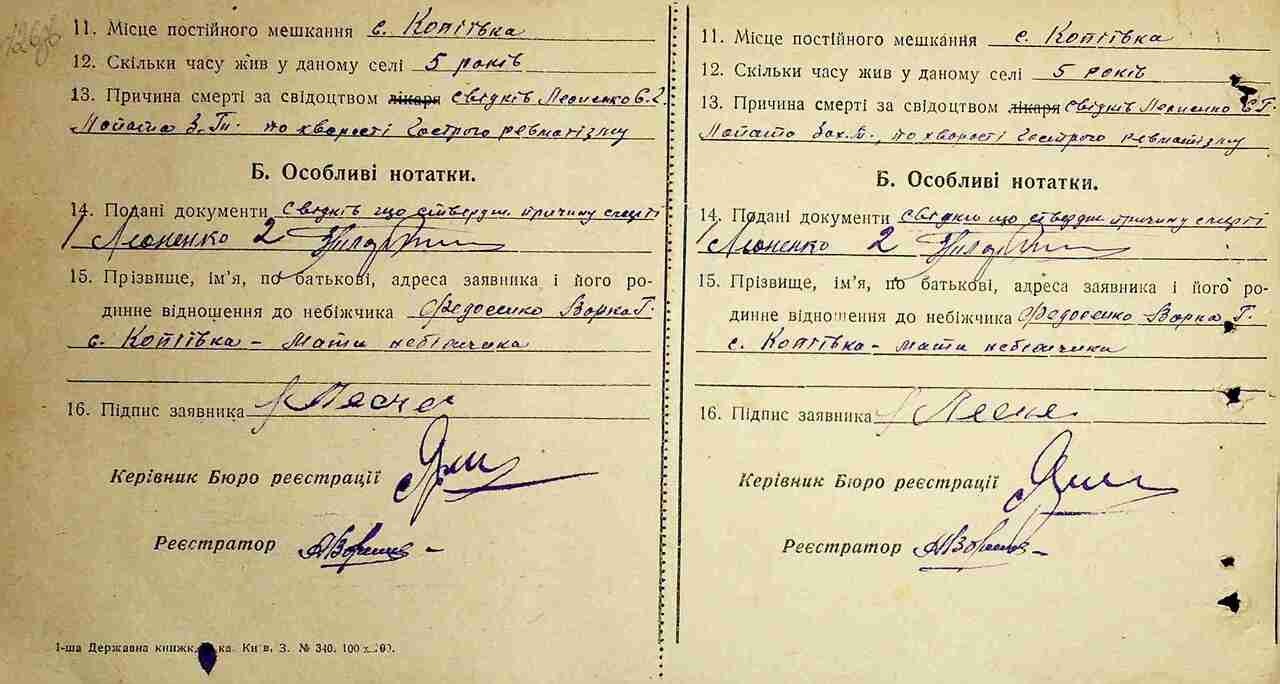 11. Місце постійного мешкання с. Копіївка
12. Скільки часу жив у даному селі 5 років
13. Причина смерті за свідоцтвом лікаря свідків
по хворості Гострого ревматізму
Б. Особливі нотатки.
14. Подані документи свідків що ствердж. причину смерті
1 Леоненко 2
15. Прізвище, ім’я, по батькові, адреса заявника і його ро-
динне відношення до небіжчика Федосенко Варка Г.
с. Копіївка – мати небіжчика
16. Підпис заявника
Керівник Бюро реєстрації
Реєстратор
1-ша Державна книжк ка. Київ. З. № 340. 100
11. Місце постійного мешкання с. Копіївка
12. Скільки часу жив у даному селі 5 років
13. Причина смерті за свідоцтвом лікаря свідків
по хворості Гострого ревматізму
Б. Особливі нотатки.
14. Подані документи свідки що ствердж. причину смерті
1 Леоненко 2
15. Прізвище, ім’я, по батькові, адреса заявника і його ро-
динне відношення до небіжчика Федосенко Варка Г.
с. Копіївка – мати небіжчика
16. Підпис заявника
Керівник Бюро реєстрації
Реєстратор